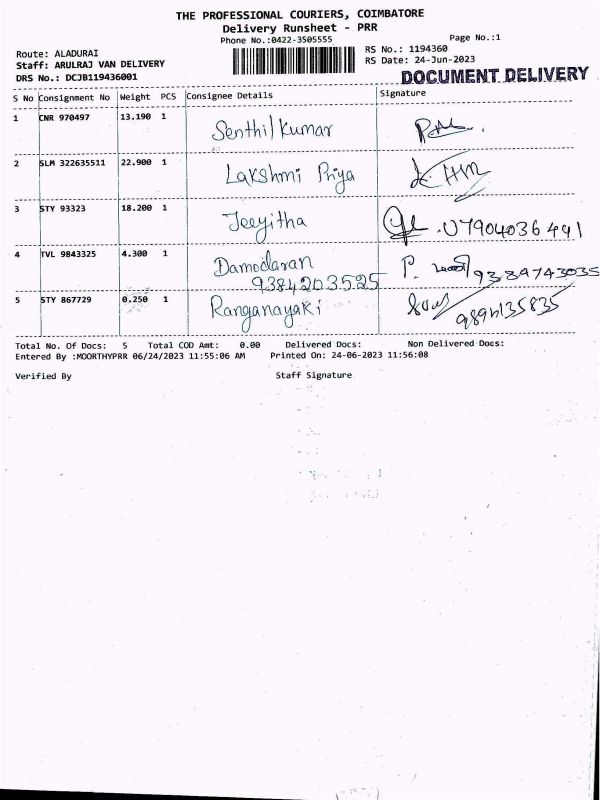 THE PROFESSIONAL COURIERS, COIMBATORE
Delivery Runsheet - PRR
Phone No.:0422-3505555
Page No.:1
Route: ALADURAI
RS No.: 1194360
Staff: ARULRAJ VAN DELIVERY
RS Date: 24-Jun-2023
DRS No.: DCJB119436001
DOCUMENT DELIVERY
S No Consignment No Weight PCS Consignee Details Signature
1 CNR 970497 13.190 1 Senthil Kumar
2 SLM 322635511 22.900 1 Lakshmi Priya
3 STY 93323 18.200 1 Jeeyitha 07904036441
4 TVL 9843325 4.300 1 Damodaran P. 9384743035
9384203525
5 STY 867729 0.250 1 Ranganayaki
Total No. Of Docs: 5 Total COD Amt: 0.00 Delivered Docs: Non Delivered Docs:
Entered By :MOORTHYPRR 06/24/2023 11:55:06 AM Printed On: 24-06-2023 11:56:08
Verified By Staff Signature